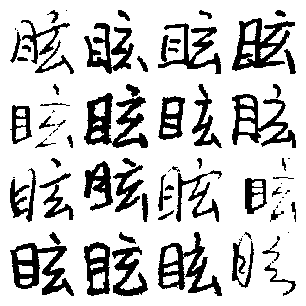 眩眩眩眩
眩眩眩眩
眩眩眩眩
眩眩眩眩